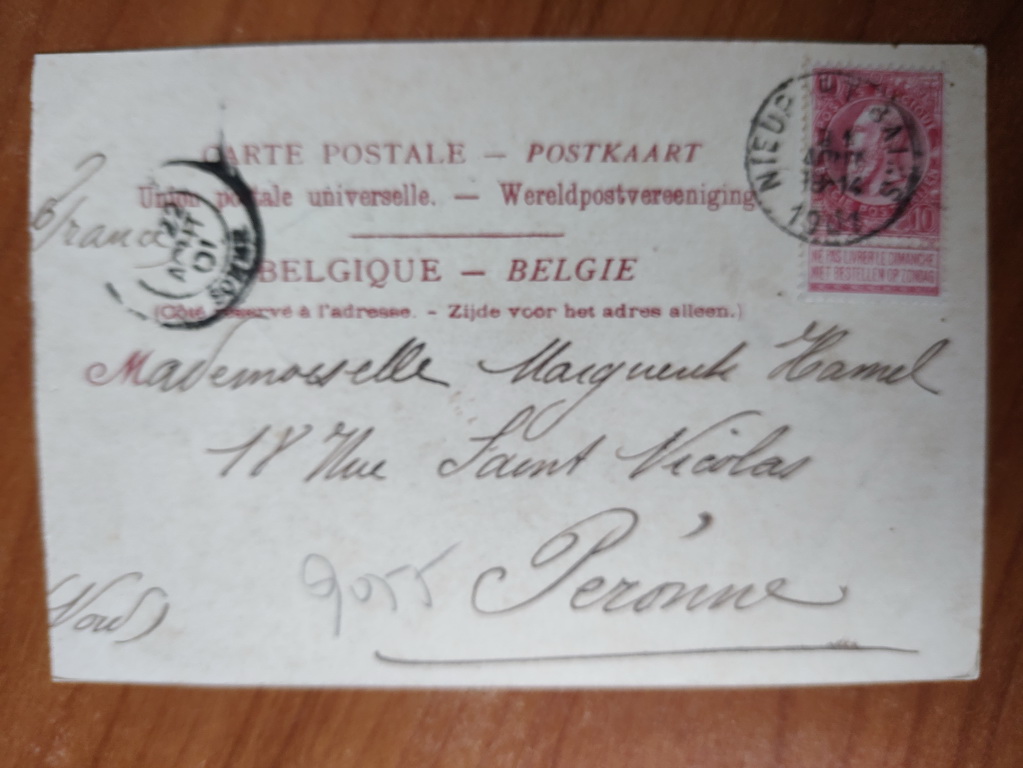 CARTE POSTALE — POSTKAART
Union postale universelle. — Wereldpostvereeniging
BELGIQUE — BELGIE
(Côté réservé à l'adresse. - Zijde voor het adres alleen.)
France
22
AOUT
01
SOMME
NIEUPORT BAINS
1901
10
NE PAS LIVRER LE DIMANCHE
NIET BESTELLEN OP ZONDAG
Mademoiselle Marguerite Hamel
18 Rue Saint Nicolas
Péronne
9055
(Nord)